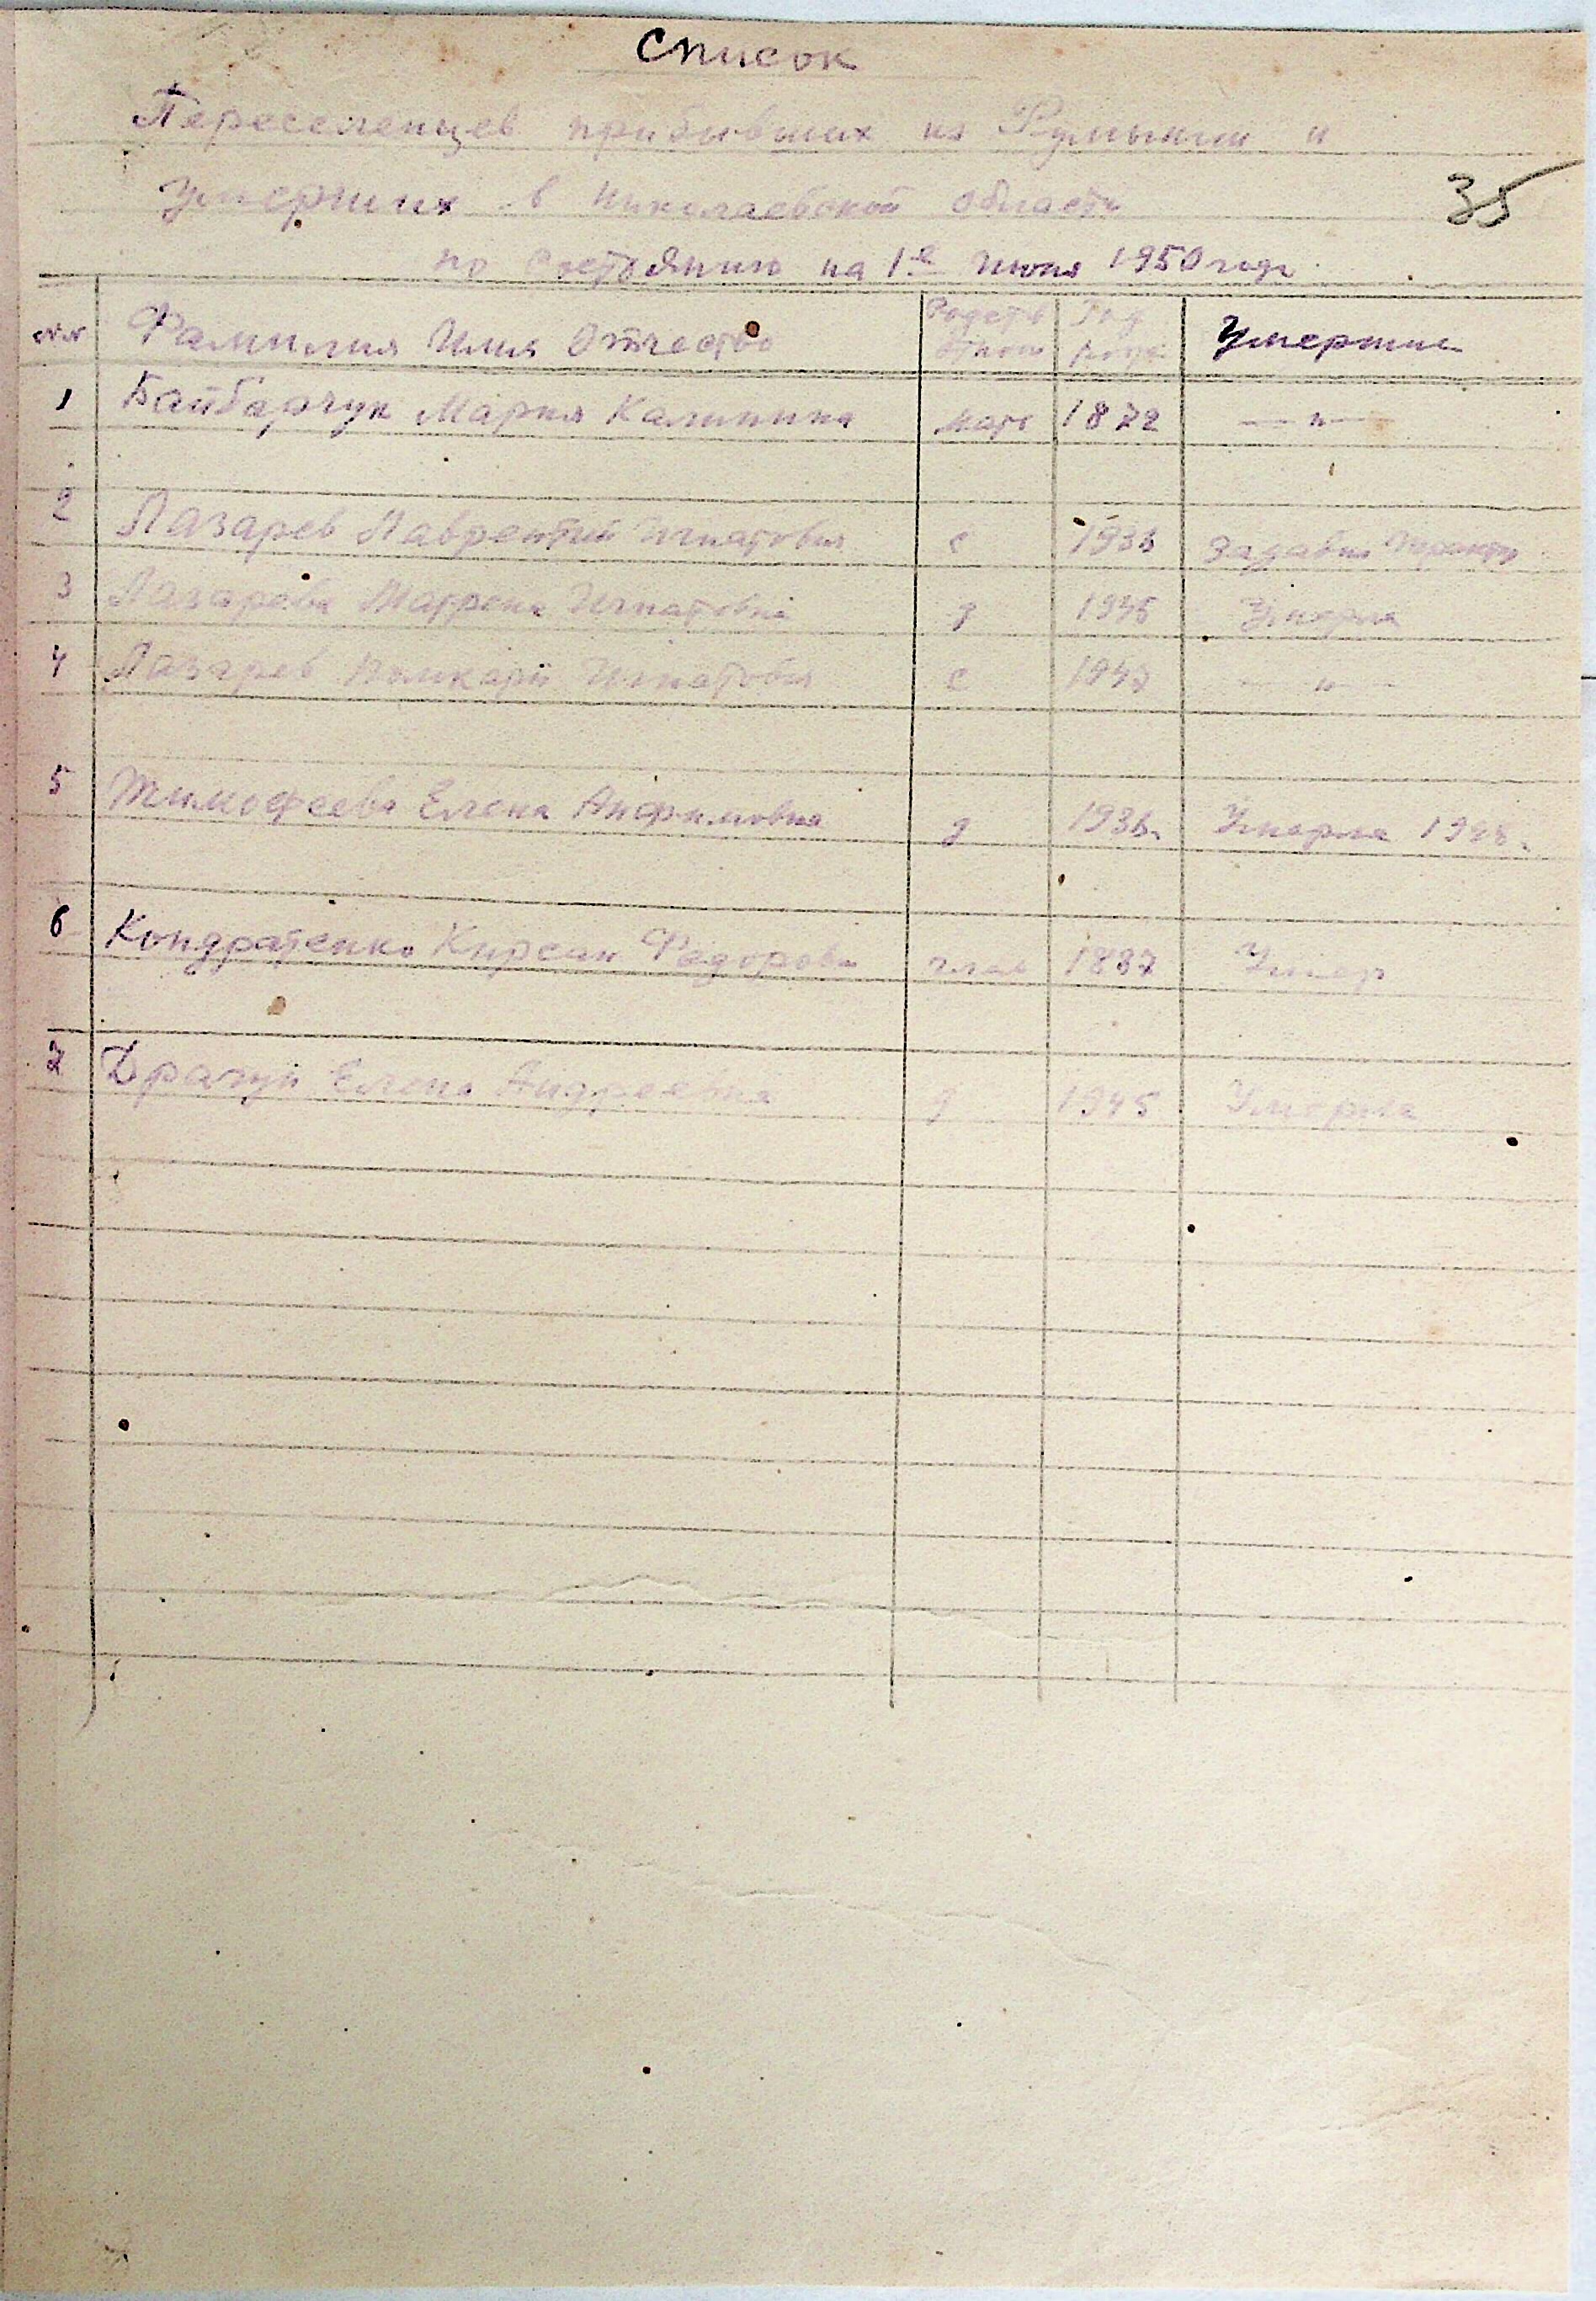 Список
Переселенцев прибывших из Румынии и
Умерших в Николаевской области
35
по состоянию на 1е Июня 1950 года.
№№ Фамилия Имя Отчество Родств отнош Год рожд Умершие
1 Байбарчук Мария Калинина мать 1872 —"—
2 Лазарев Лаврентий Игнатович с 193 задавил
3 Лазарева Матрена Игнатовна д 1945 Умерла
4 Лазарев Поликарп Игнатович с 1947 —"—
5 Тимофеева Елена Анфимовна д 193 Умерла 1948.
6 Кондратенко Кирсан Федорович глав 1887 Умер
7 Драгуй Елена Андреевна д 1945 Умерла